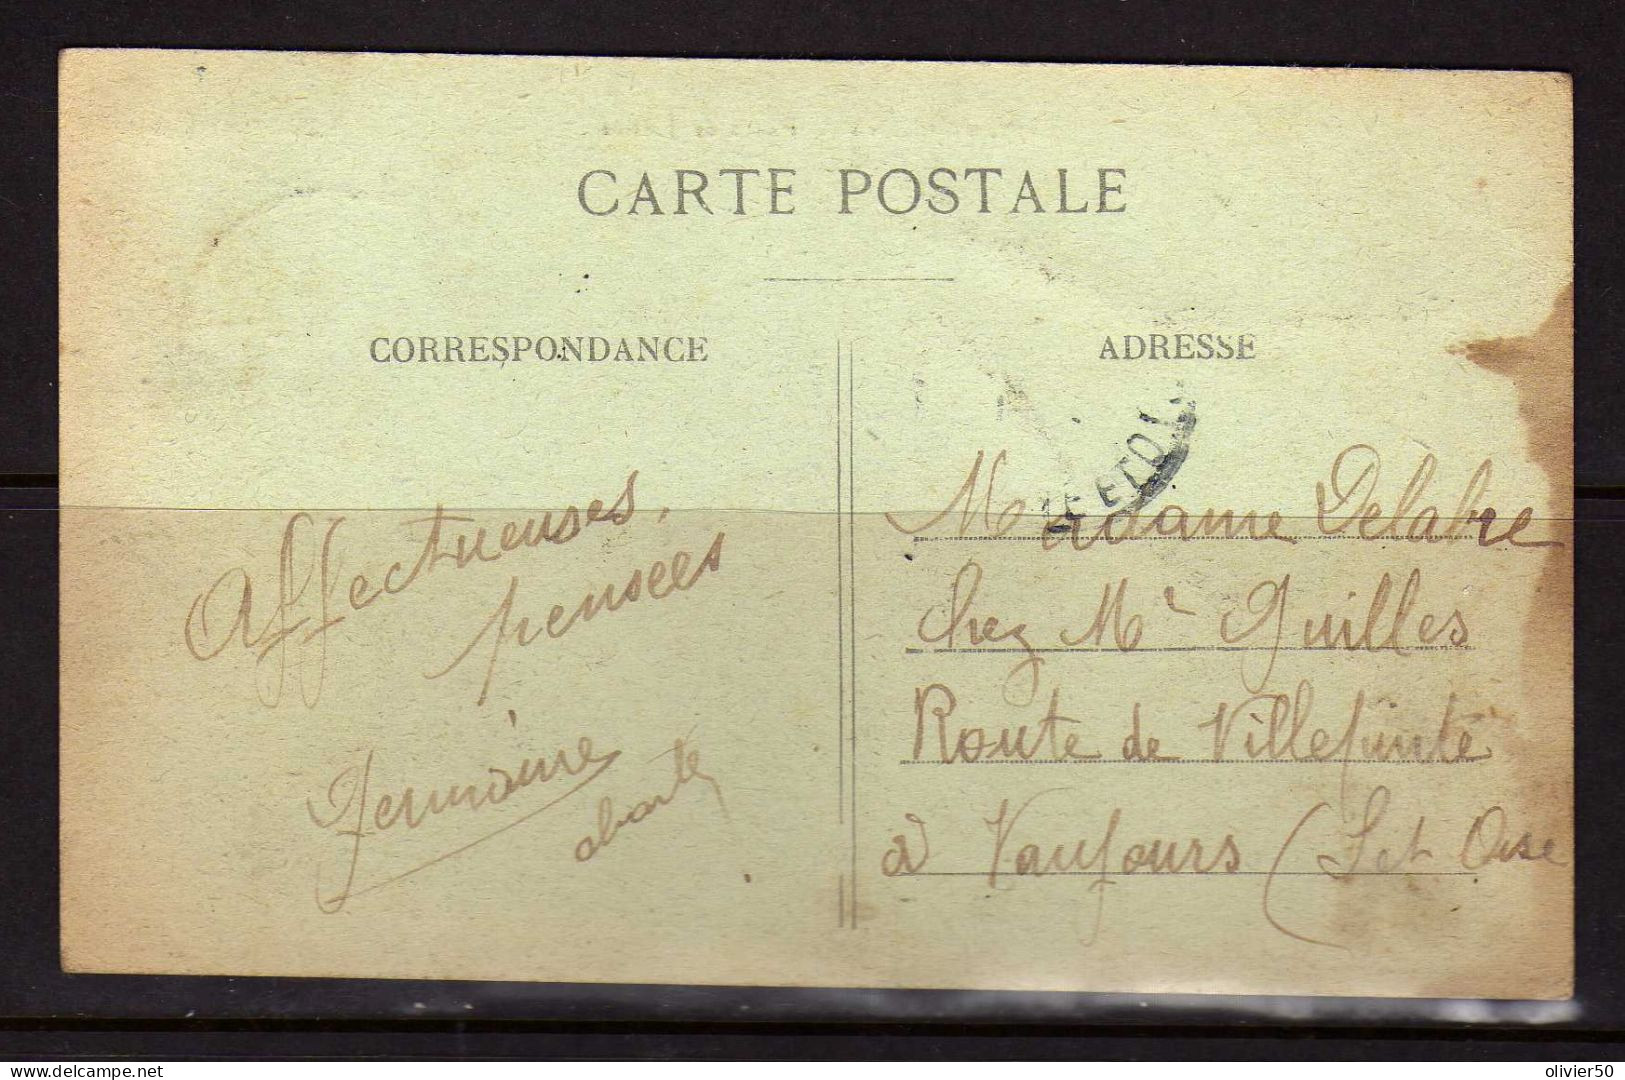 CARTE POSTALE
CORRESPONDANCE
ADRESSE
Affectueuses
pensées
Germaine
Madame Delabre
Chez Mr Guilles
Route de Villepinte
à Vaujours (Set Oise
delcampe.net
olivier50